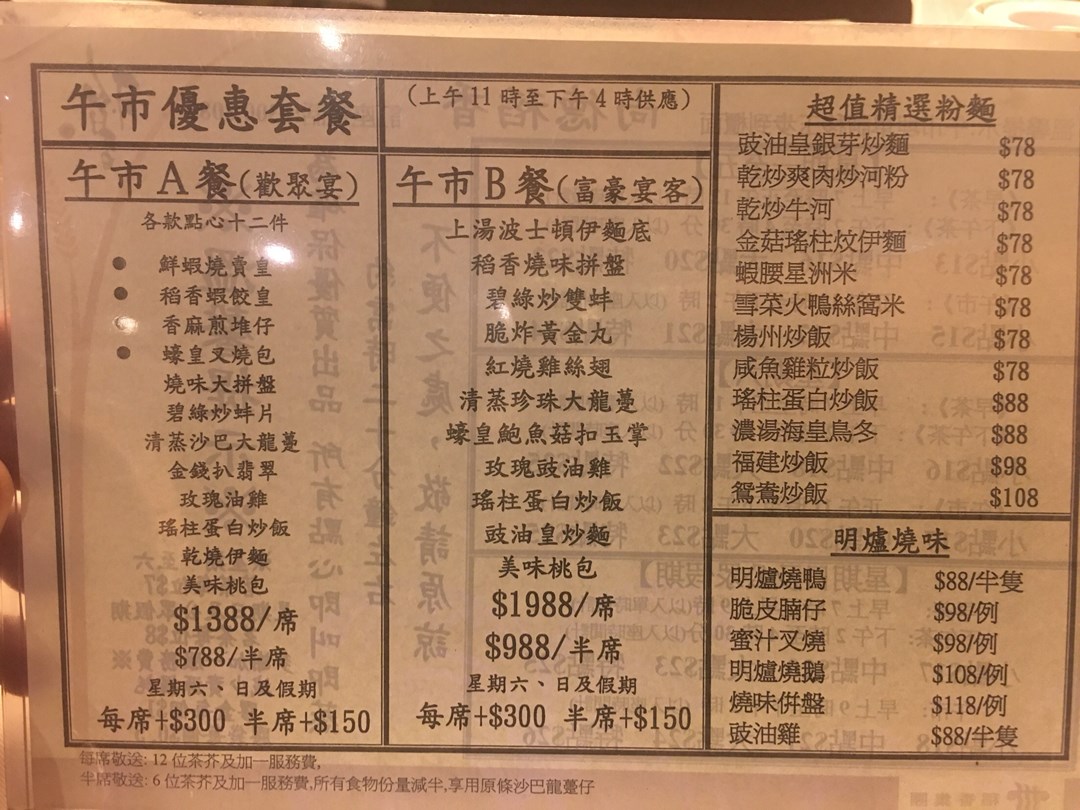 午市優惠套餐
(上午11時至下午4時供應)
午市A餐(歡聚宴)
各款點心十二件
● 鮮蝦燒賣皇
● 稻香蝦餃皇
● 香麻煎堆仔
● 蠔皇叉燒包
燒味大拼盤
碧綠炒蚌片
清蒸沙巴大龍躉
金錢扒翡翠
玫瑰油雞
瑤柱蛋白炒飯
乾燒伊麵
美味桃包
$1388/席
$788/半席
星期六、日及假期
每席+$300 半席+$150
午市B餐(富豪宴客)
上湯波士頓伊麵底
稻香燒味拼盤
碧綠炒雙蚌
脆炸黃金丸
紅燒雞絲翅
清蒸珍珠大龍躉
蠔皇鮑魚菇扣玉掌
玫瑰豉油雞
瑤柱蛋白炒飯
豉油皇炒麵
美味桃包
$1988/席
$988/半席
星期六、日及假期
每席+$300 半席+$150
超值精選粉麵
豉油皇銀芽炒麵 $78
乾炒爽肉炒河粉 $78
乾炒牛河 $78
金菇瑤柱炆伊麵 $78
蝦腰星洲米 $78
雪菜火鴨絲窩米 $78
楊州炒飯 $78
咸魚雞粒炒飯 $78
瑤柱蛋白炒飯 $88
濃湯海皇烏冬 $88
福建炒飯 $98
鴛鴦炒飯 $108
明爐燒味
明爐燒鴨 $88/半隻
脆皮腩仔 $98/例
蜜汁叉燒 $98/例
明爐燒鵝 $108/例
燒味併盤 $118/例
豉油雞 $88/半隻
每席敬送: 12位茶芥及加一服務費,
半席敬送: 6位茶芥及加一服務費,所有食物份量減半,享用原條沙巴龍躉仔